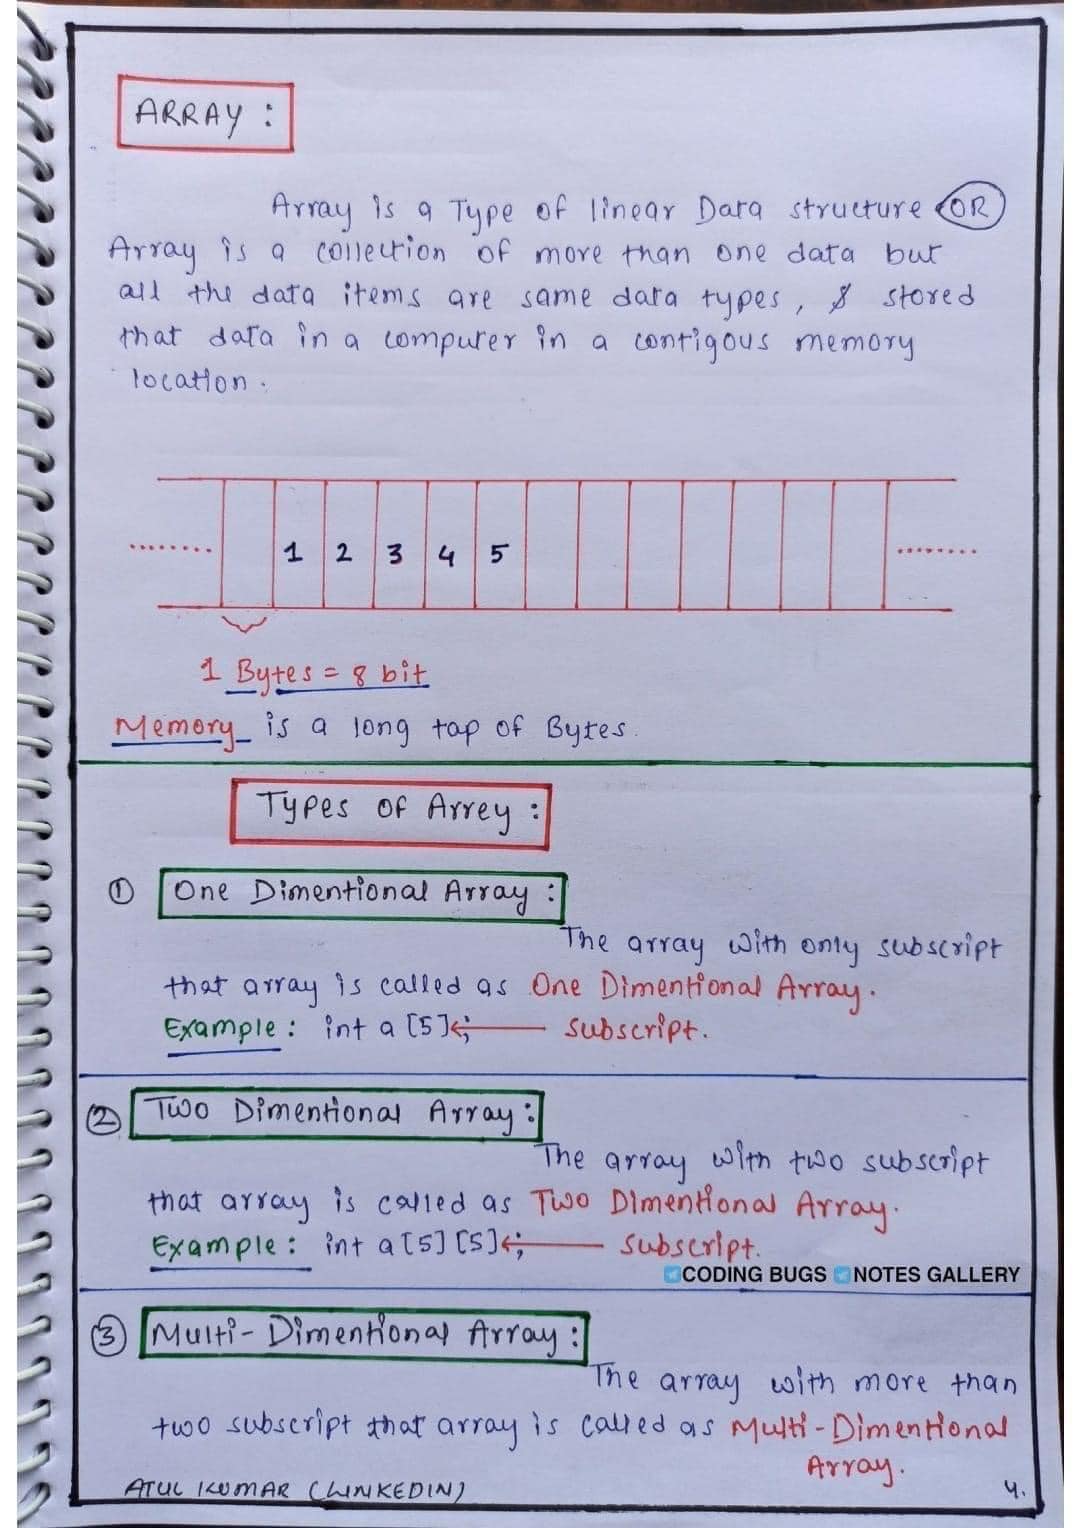 ARRAY :
Array is a Type of linear Data structure OR
Array is a collection of more than one data but
all the data items are same data types, & stored
that data in a computer in a contigous memory
location.
........ 1 2 3 4 5 ........
1 Bytes = 8 bit
Memory is a long tap of Bytes.
Types of Arrey :
① One Dimentional Array :
The array with only subscript
that array is called as One Dimentional Array.
Example : int a [5]; ← subscript.
② Two Dimentional Array :
The array with two subscript
that array is called as Two Dimentional Array.
Example : int a [5] [5]; ← subscript.
CODING BUGS NOTES GALLERY
③ Multi-Dimentional Array :
The array with more than
two subscript that array is called as Multi-Dimentional
Array.
ATUL KUMAR (LINKEDIN)
4.